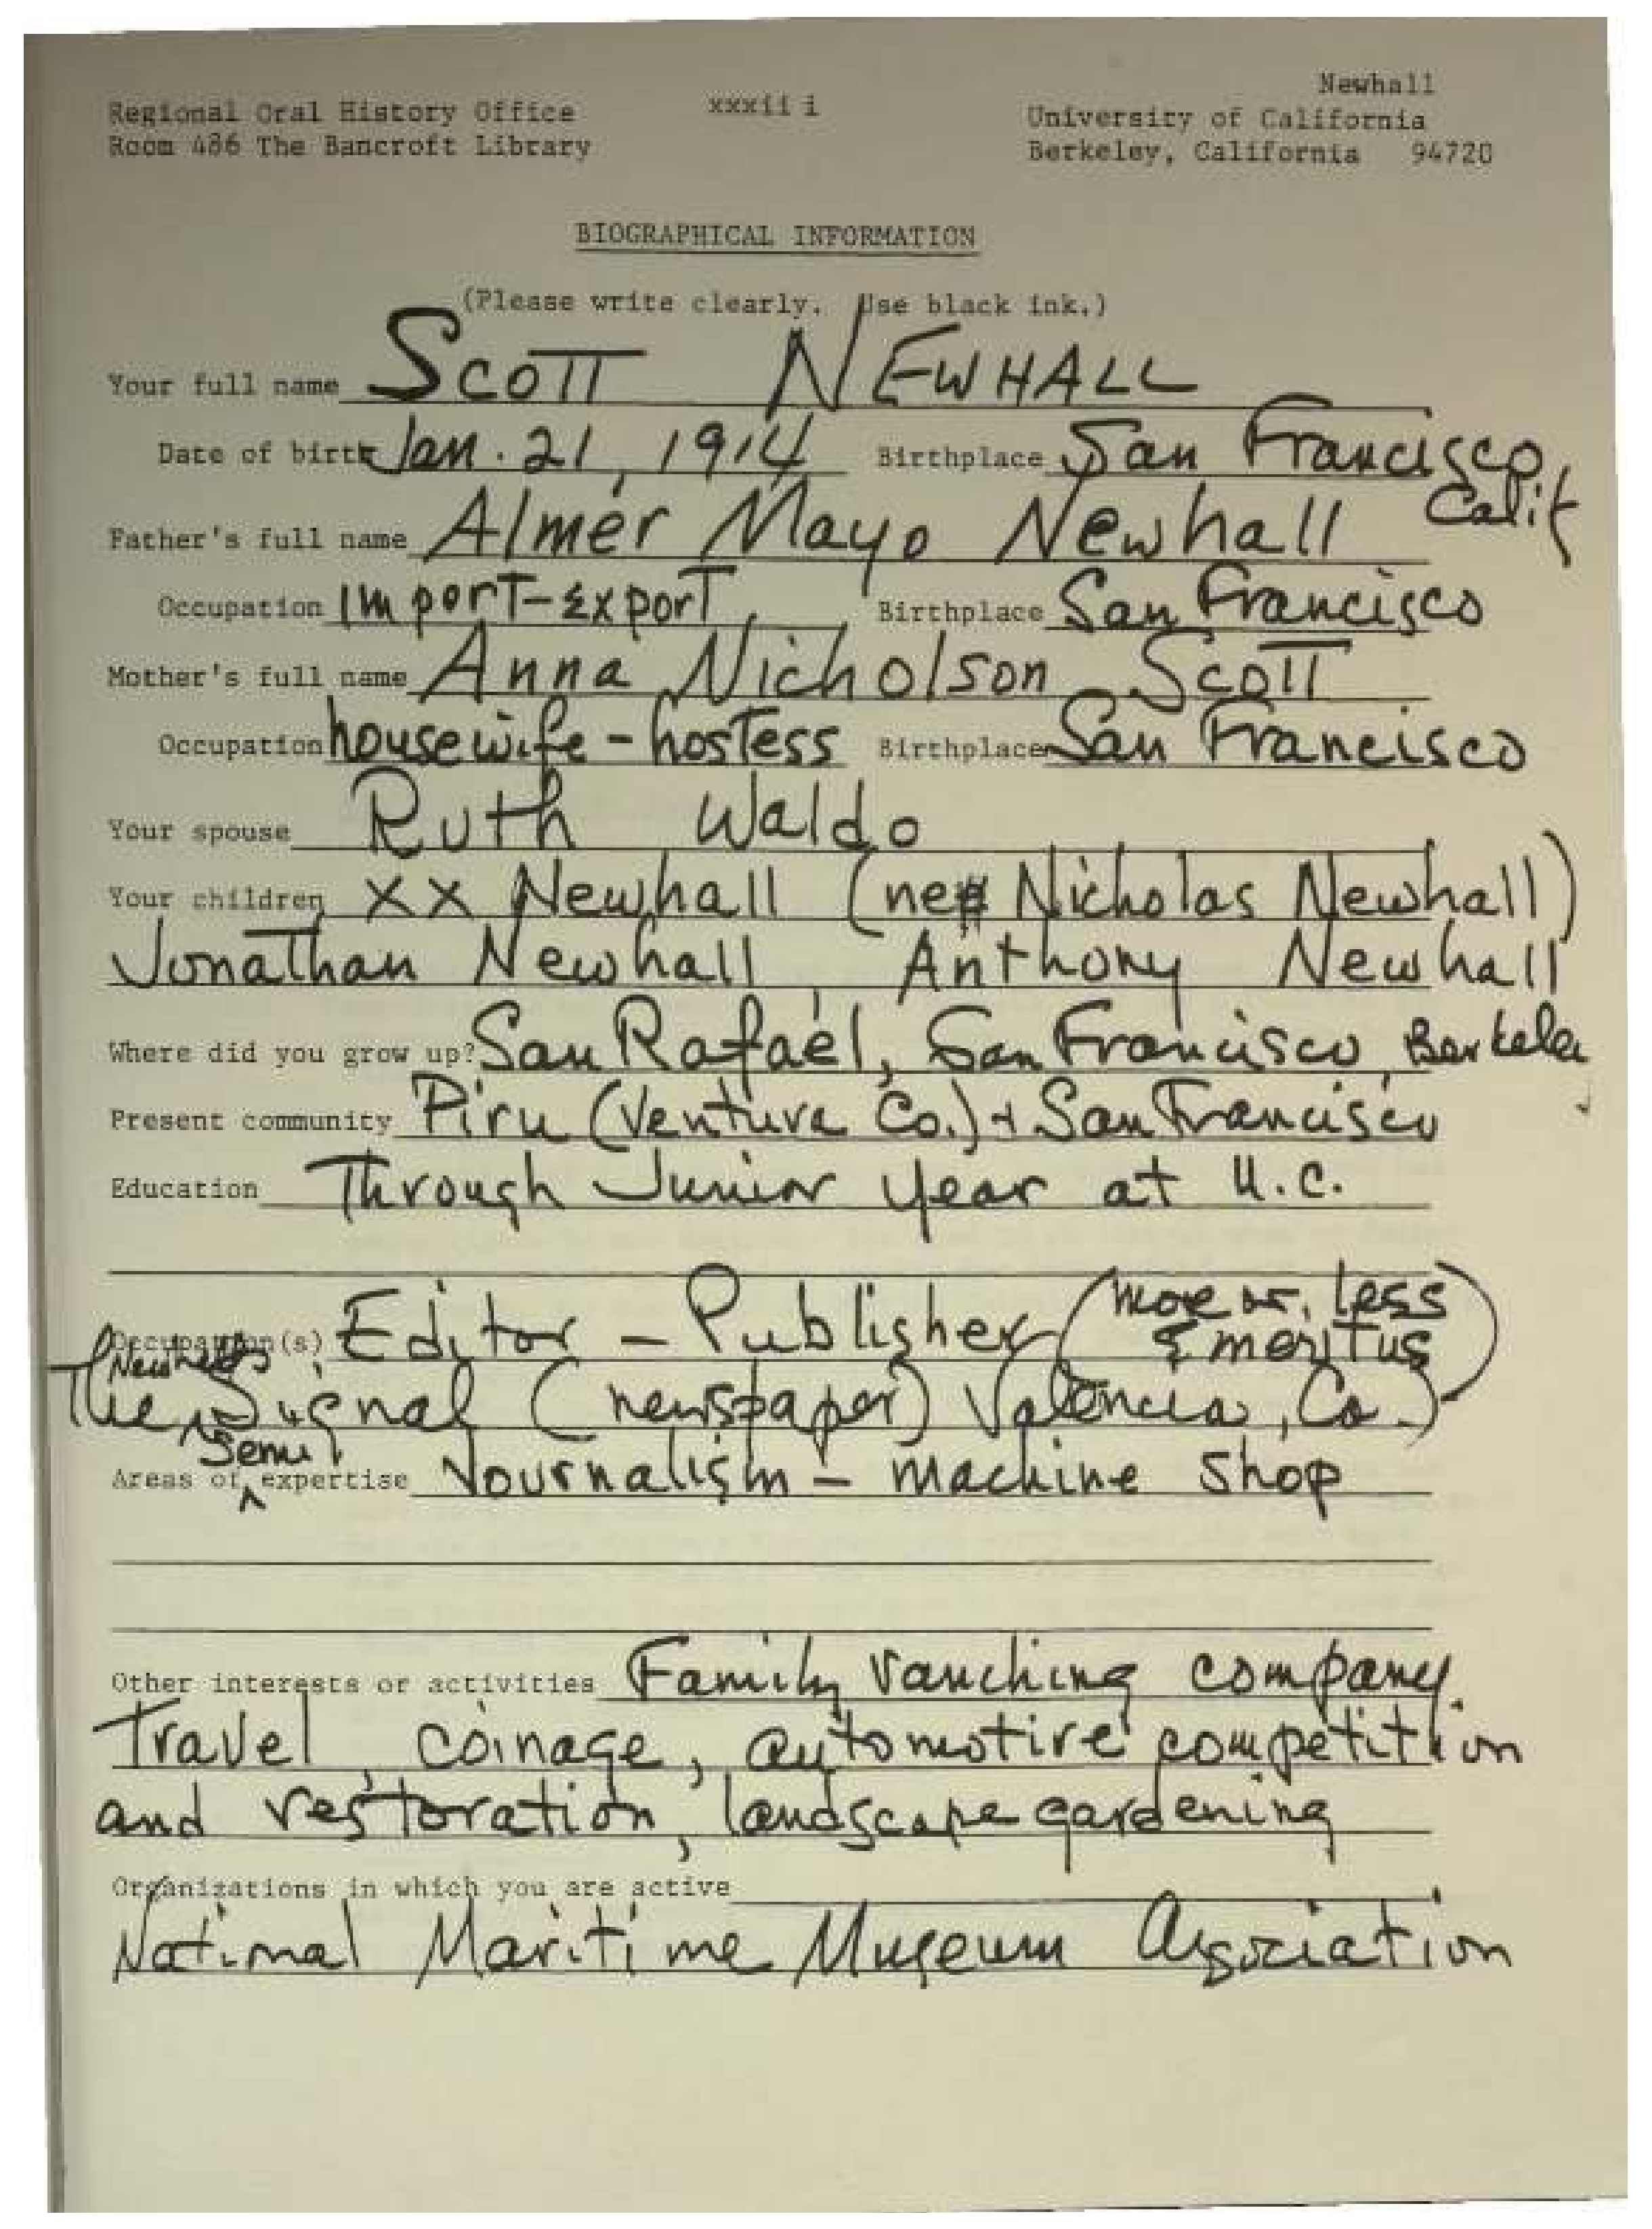 Newhall
Regional Oral History Office xxxii i University of California
Room 486 The Bancroft Library Berkeley, California 94720
BIOGRAPHICAL INFORMATION
(Please write clearly. Use black ink.)
Your full name SCOTT NEWHALL
Date of birth Jan. 21, 1914 Birthplace San Francisco,
Calif
Father's full name Almer Mayo Newhall
Occupation Import-Export Birthplace San Francisco
Mother's full name Anna Nicholson Scott
Occupation housewife - hostess Birthplace San Francisco
Your spouse Ruth Waldo
Your children XX Newhall (né Nicholas Newhall)
Jonathan Newhall, Anthony Newhall
Where did you grow up? San Rafael, San Francisco, Berkeley
Present community Piru (Ventura Co.) + San Francisco
Education Through Junior year at U.C.
Occupation(s) Editor - Publisher (more or less
Emeritus)
The Newhall Signal (newspaper) Valencia, Ca.)
Semi
Areas of ^ expertise Journalism - machine shop
Other interests or activities Family ranching company.
Travel, coinage, automotive competition
and restoration, landscape gardening
Organizations in which you are active
National Maritime Museum Association